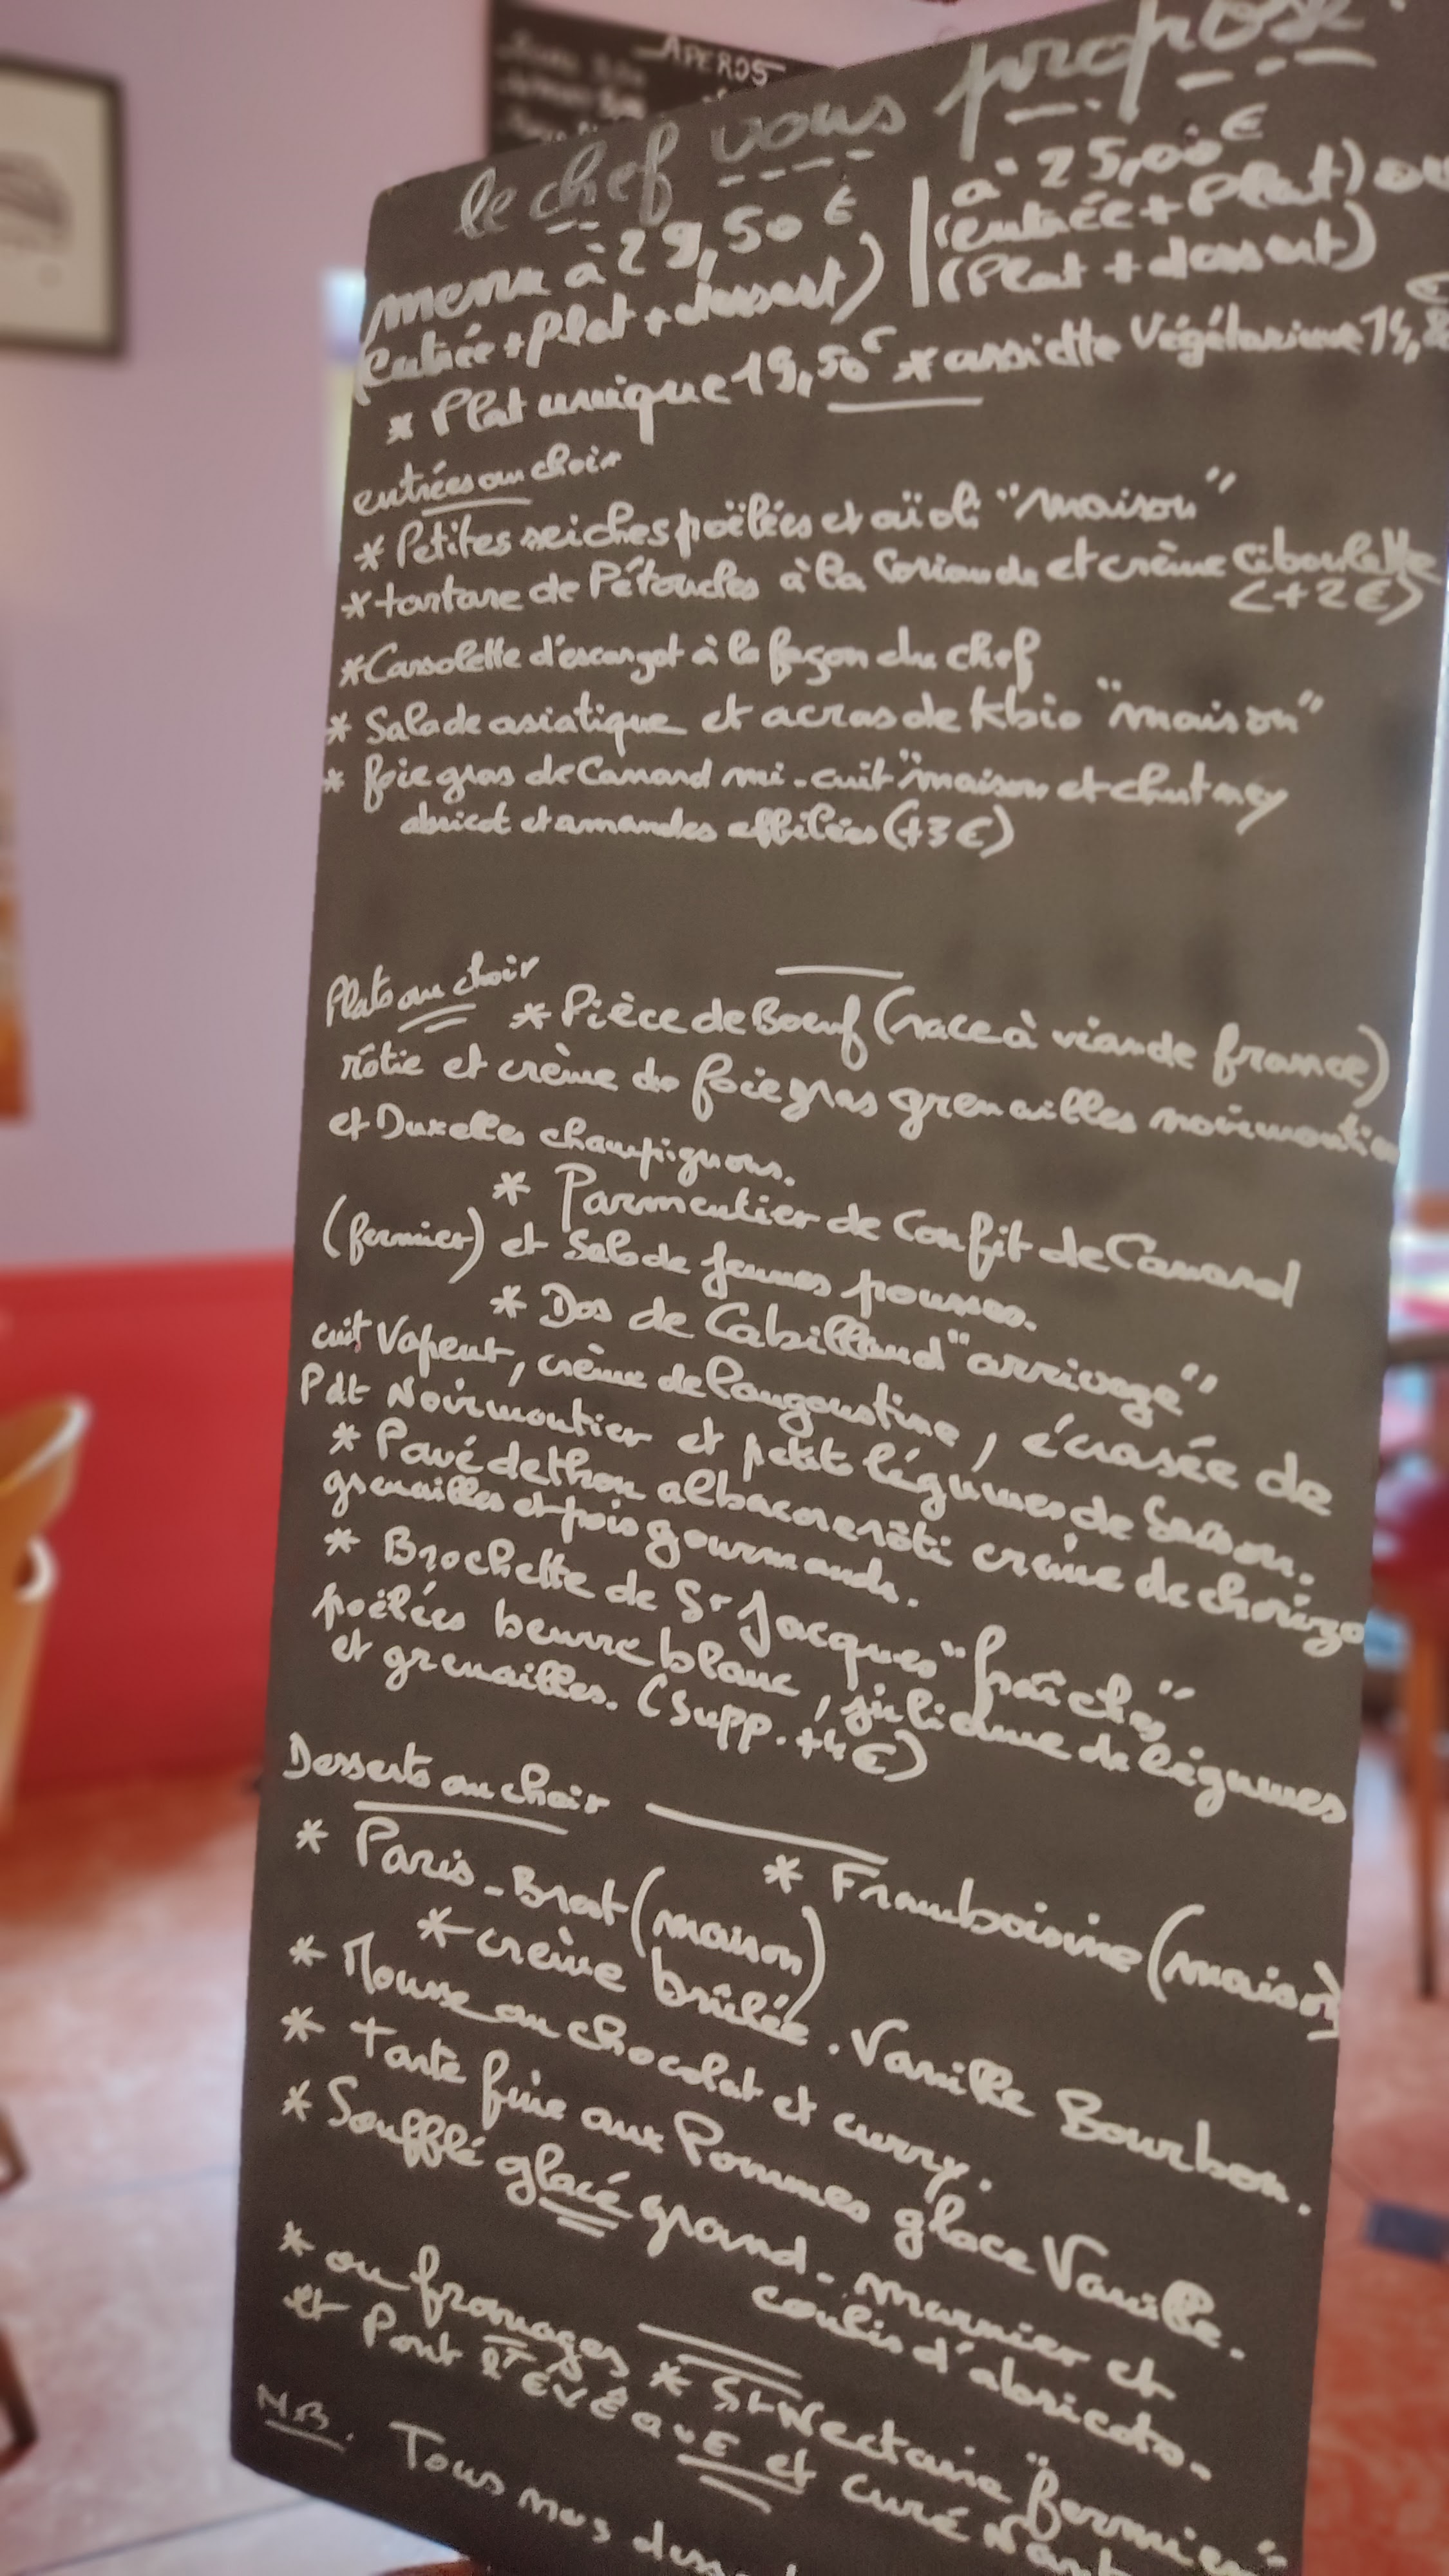 APEROS
le chef vous propose
menu à 29,50 €
(entrée + plat + dessert)
à 25,00 €
(entrée + Plat) ou
(Plat + dessert)
* Plat unique 19,50 € * assiette Végétarienne
entrées au choix
* Petites seiches poëlées et aïoli "maison"
* tartare de Pétoncles à la Coriande et crème Ciboulette
(+2€)
* Cassolette d'escargot à la façon du chef
* Salade asiatique et acras de "maison"
* foie gras de Canard mi-cuit "maison et chutney
abricot et amandes effilées (+3€)
Plats au choix
* Pièce de Boeuf (race à viande france)
rôtie et crème de foie gras grenailles noirmoutier
et Duxelles champignons.
* Parmentier de Confit de Canard
(fermier) et Salade jeunes pousses.
* Dos de Cabillaud "arrivage"
cuit Vapeur, crème de langoustine, écrasée de
Pdt Noirmoutier et petits légumes de Saison.
* Pavé de thon albacore rôti crème de chorizo
grenailles et pois gourmands.
* Brochette de St Jacques "fraîches"
poëlées beurre blanc, julienne de légumes
et grenailles. (Supp. +4€)
Desserts au choix
* Paris-Brest (maison)
* Framboisine (maison)
* crème brûlée. Vanille Bourbon.
* Mousse au chocolat et curry.
* tarte fine aux Pommes glace Vanille.
* Soufflé glacé grand-marnier et
coulis d'abricots.
* ou fromages * St Nectaire "fermier"
et Pont l'EVÊQUE et curé Nant
NB. Tous nos